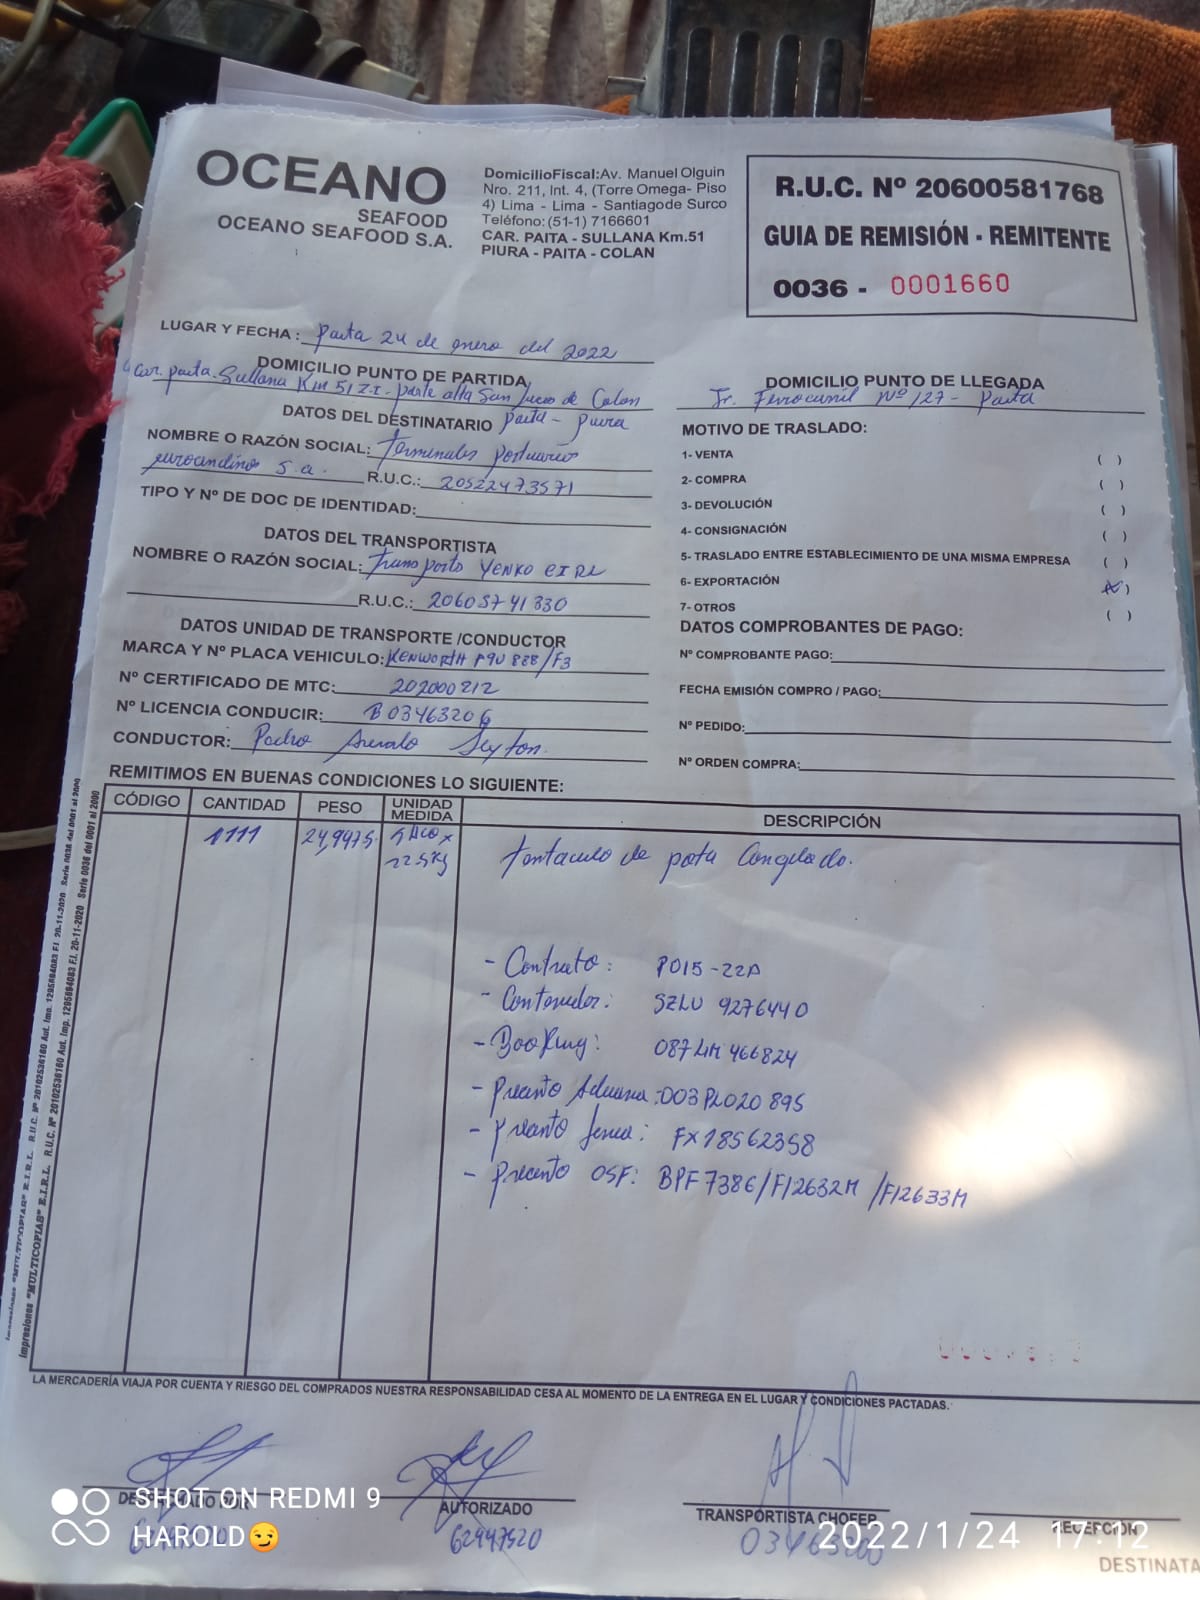 OCEANO
SEAFOOD
OCEANO SEAFOOD S.A.
DomicilioFiscal:Av. Manuel Olguin
Nro. 211, Int. 4, (Torre Omega- Piso
4) Lima - Lima - Santiagode Surco
Teléfono:(51-1) 7166601
CAR. PAITA - SULLANA Km.51
PIURA - PAITA - COLAN
R.U.C. Nº 20600581768
GUIA DE REMISIÓN - REMITENTE
0036 - 0001660
LUGAR Y FECHA : Paita 24 de enero del 2022
DOMICILIO PUNTO DE PARTIDA
Car. paita. Sullana Km 51 Z.I - parte alta San Lucas de Colan
Paita - Piura
DOMICILIO PUNTO DE LLEGADA
Jr. Ferrocarril Nº 127 - Paita
DATOS DEL DESTINATARIO
NOMBRE O RAZÓN SOCIAL: Terminales portuarios
euroandinos s.a.
R.U.C.: 20522473571
TIPO Y Nº DE DOC DE IDENTIDAD:
DATOS DEL TRANSPORTISTA
NOMBRE O RAZÓN SOCIAL: Transporto YENKO EIRL
R.U.C.: 20605741330
DATOS UNIDAD DE TRANSPORTE /CONDUCTOR
MARCA Y Nº PLACA VEHICULO: KENWORTH P9U 888/F3
Nº CERTIFICADO DE MTC: 202000212
Nº LICENCIA CONDUCIR: B03463206
CONDUCTOR: Pedro Arevalo
MOTIVO DE TRASLADO:
1- VENTA ( )
2- COMPRA ( )
3- DEVOLUCIÓN ( )
4- CONSIGNACIÓN ( )
5- TRASLADO ENTRE ESTABLECIMIENTO DE UNA MISMA EMPRESA ( )
6- EXPORTACIÓN (X)
7- OTROS ( )
DATOS COMPROBANTES DE PAGO:
Nº COMPROBANTE PAGO:
FECHA EMISIÓN COMPRO / PAGO:
Nº PEDIDO:
Nº ORDEN COMPRA:
REMITIMOS EN BUENAS CONDICIONES LO SIGUIENTE:
CÓDIGO CANTIDAD PESO UNIDAD MEDIDA DESCRIPCIÓN
1111 24,9975 SACO x
22.5Kg
tentaculo de pota Congelado.
- Contrato : P015-22A
- Contenedor : SZLU 9276440
- Booking : 087LIM466824
- Precinto Aduana : 003PL020895
- Precinto linea : FX18562358
- Precinto OSF: BPF7386/F12632M /F12633M
LA MERCADERÍA VIAJA POR CUENTA Y RIESGO DEL COMPRADOS NUESTRA RESPONSABILIDAD CESA AL MOMENTO DE LA ENTREGA EN EL LUGAR Y CONDICIONES PACTADAS.
DESPACHADO POR
AUTORIZADO
62947520
TRANSPORTISTA CHOFER
RECEPCIÓN
DESTINATA
Impresiones "MULTICOPIAS" E.I.R.L. R.U.C. Nº 20102536160 Aut. Imp. 1295694083 F.I. 20-11-2020 Serie 0036 del 0001 al 2000
SHOT ON REDMI 9
HAROLD😏
2022/1/24 17:12